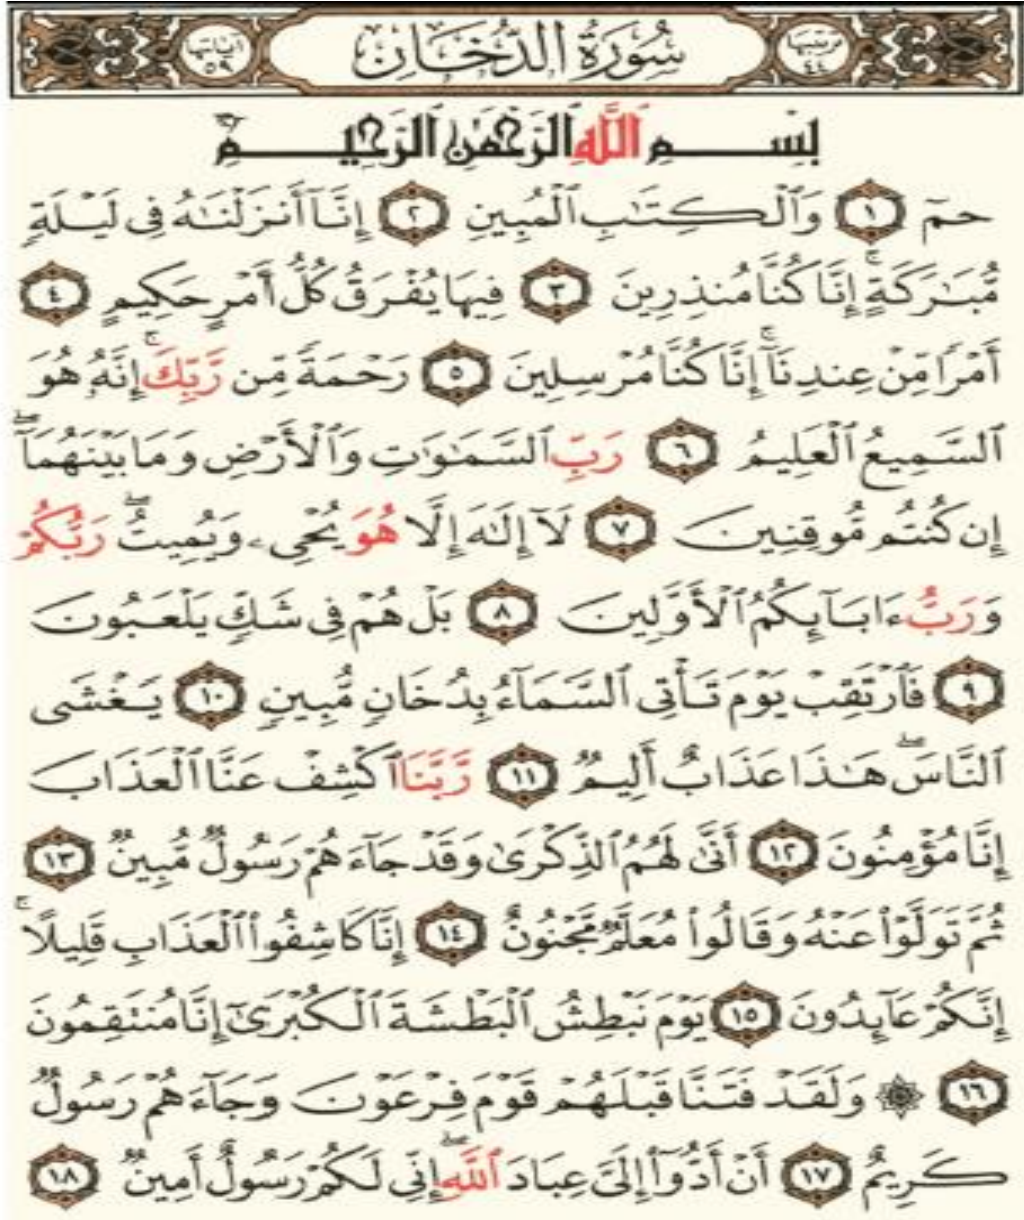 مرتبتها ٤٤ سُورَةُ الدُّخَانِ آياتها ٥٩
بِسْمِ ٱللَّهِ ٱلرَّحْمَٰنِ ٱلرَّحِيمِ
حمٓ ١ وَٱلْكِتَٰبِ ٱلْمُبِينِ ٢ إِنَّآ أَنزَلْنَٰهُ فِى لَيْلَةٍ
مُّبَٰرَكَةٍ ۚ إِنَّا كُنَّا مُنذِرِينَ ٣ فِيهَا يُفْرَقُ كُلُّ أَمْرٍ حَكِيمٍ ٤
أَمْرًا مِّنْ عِندِنَآ ۚ إِنَّا كُنَّا مُرْسِلِينَ ٥ رَحْمَةً مِّن رَّبِّكَ ۚ إِنَّهُۥ هُوَ
ٱلسَّمِيعُ ٱلْعَلِيمُ ٦ رَبِّ ٱلسَّمَٰوَٰتِ وَٱلْأَرْضِ وَمَا بَيْنَهُمَآ ۖ
إِن كُنتُم مُّوقِنِينَ ٧ لَآ إِلَٰهَ إِلَّا هُوَ يُحْىِۦ وَيُمِيتُ ۖ رَبُّكُمْ
وَرَبُّ ءَابَآئِكُمُ ٱلْأَوَّلِينَ ٨ بَلْ هُمْ فِى شَكٍّ يَلْعَبُونَ
٩ فَٱرْتَقِبْ يَوْمَ تَأْتِى ٱلسَّمَآءُ بِدُخَانٍ مُّبِينٍ ١٠ يَغْشَى
ٱلنَّاسَ ۖ هَٰذَا عَذَابٌ أَلِيمٌ ١١ رَّبَّنَا ٱكْشِفْ عَنَّا ٱلْعَذَابَ
إِنَّا مُؤْمِنُونَ ١٢ أَنَّىٰ لَهُمُ ٱلذِّكْرَىٰ وَقَدْ جَآءَهُمْ رَسُولٌ مُّبِينٌ ١٣
ثُمَّ تَوَلَّوْا۟ عَنْهُ وَقَالُوا۟ مُعَلَّمٌ مَّجْنُونٌ ١٤ إِنَّا كَاشِفُوا۟ ٱلْعَذَابِ قَلِيلًا ۚ
إِنَّكُمْ عَآئِدُونَ ١٥ يَوْمَ نَبْطِشُ ٱلْبَطْشَةَ ٱلْكُبْرَىٰٓ إِنَّا مُنتَقِمُونَ
١٦ ۞ وَلَقَدْ فَتَنَّا قَبْلَهُمْ قَوْمَ فِرْعَوْنَ وَجَآءَهُمْ رَسُولٌ
كَرِيمٌ ١٧ أَنْ أَدُّوٓا۟ إِلَىَّ عِبَادَ ٱللَّهِ ۖ إِنِّى لَكُمْ رَسُولٌ أَمِينٌ ١٨